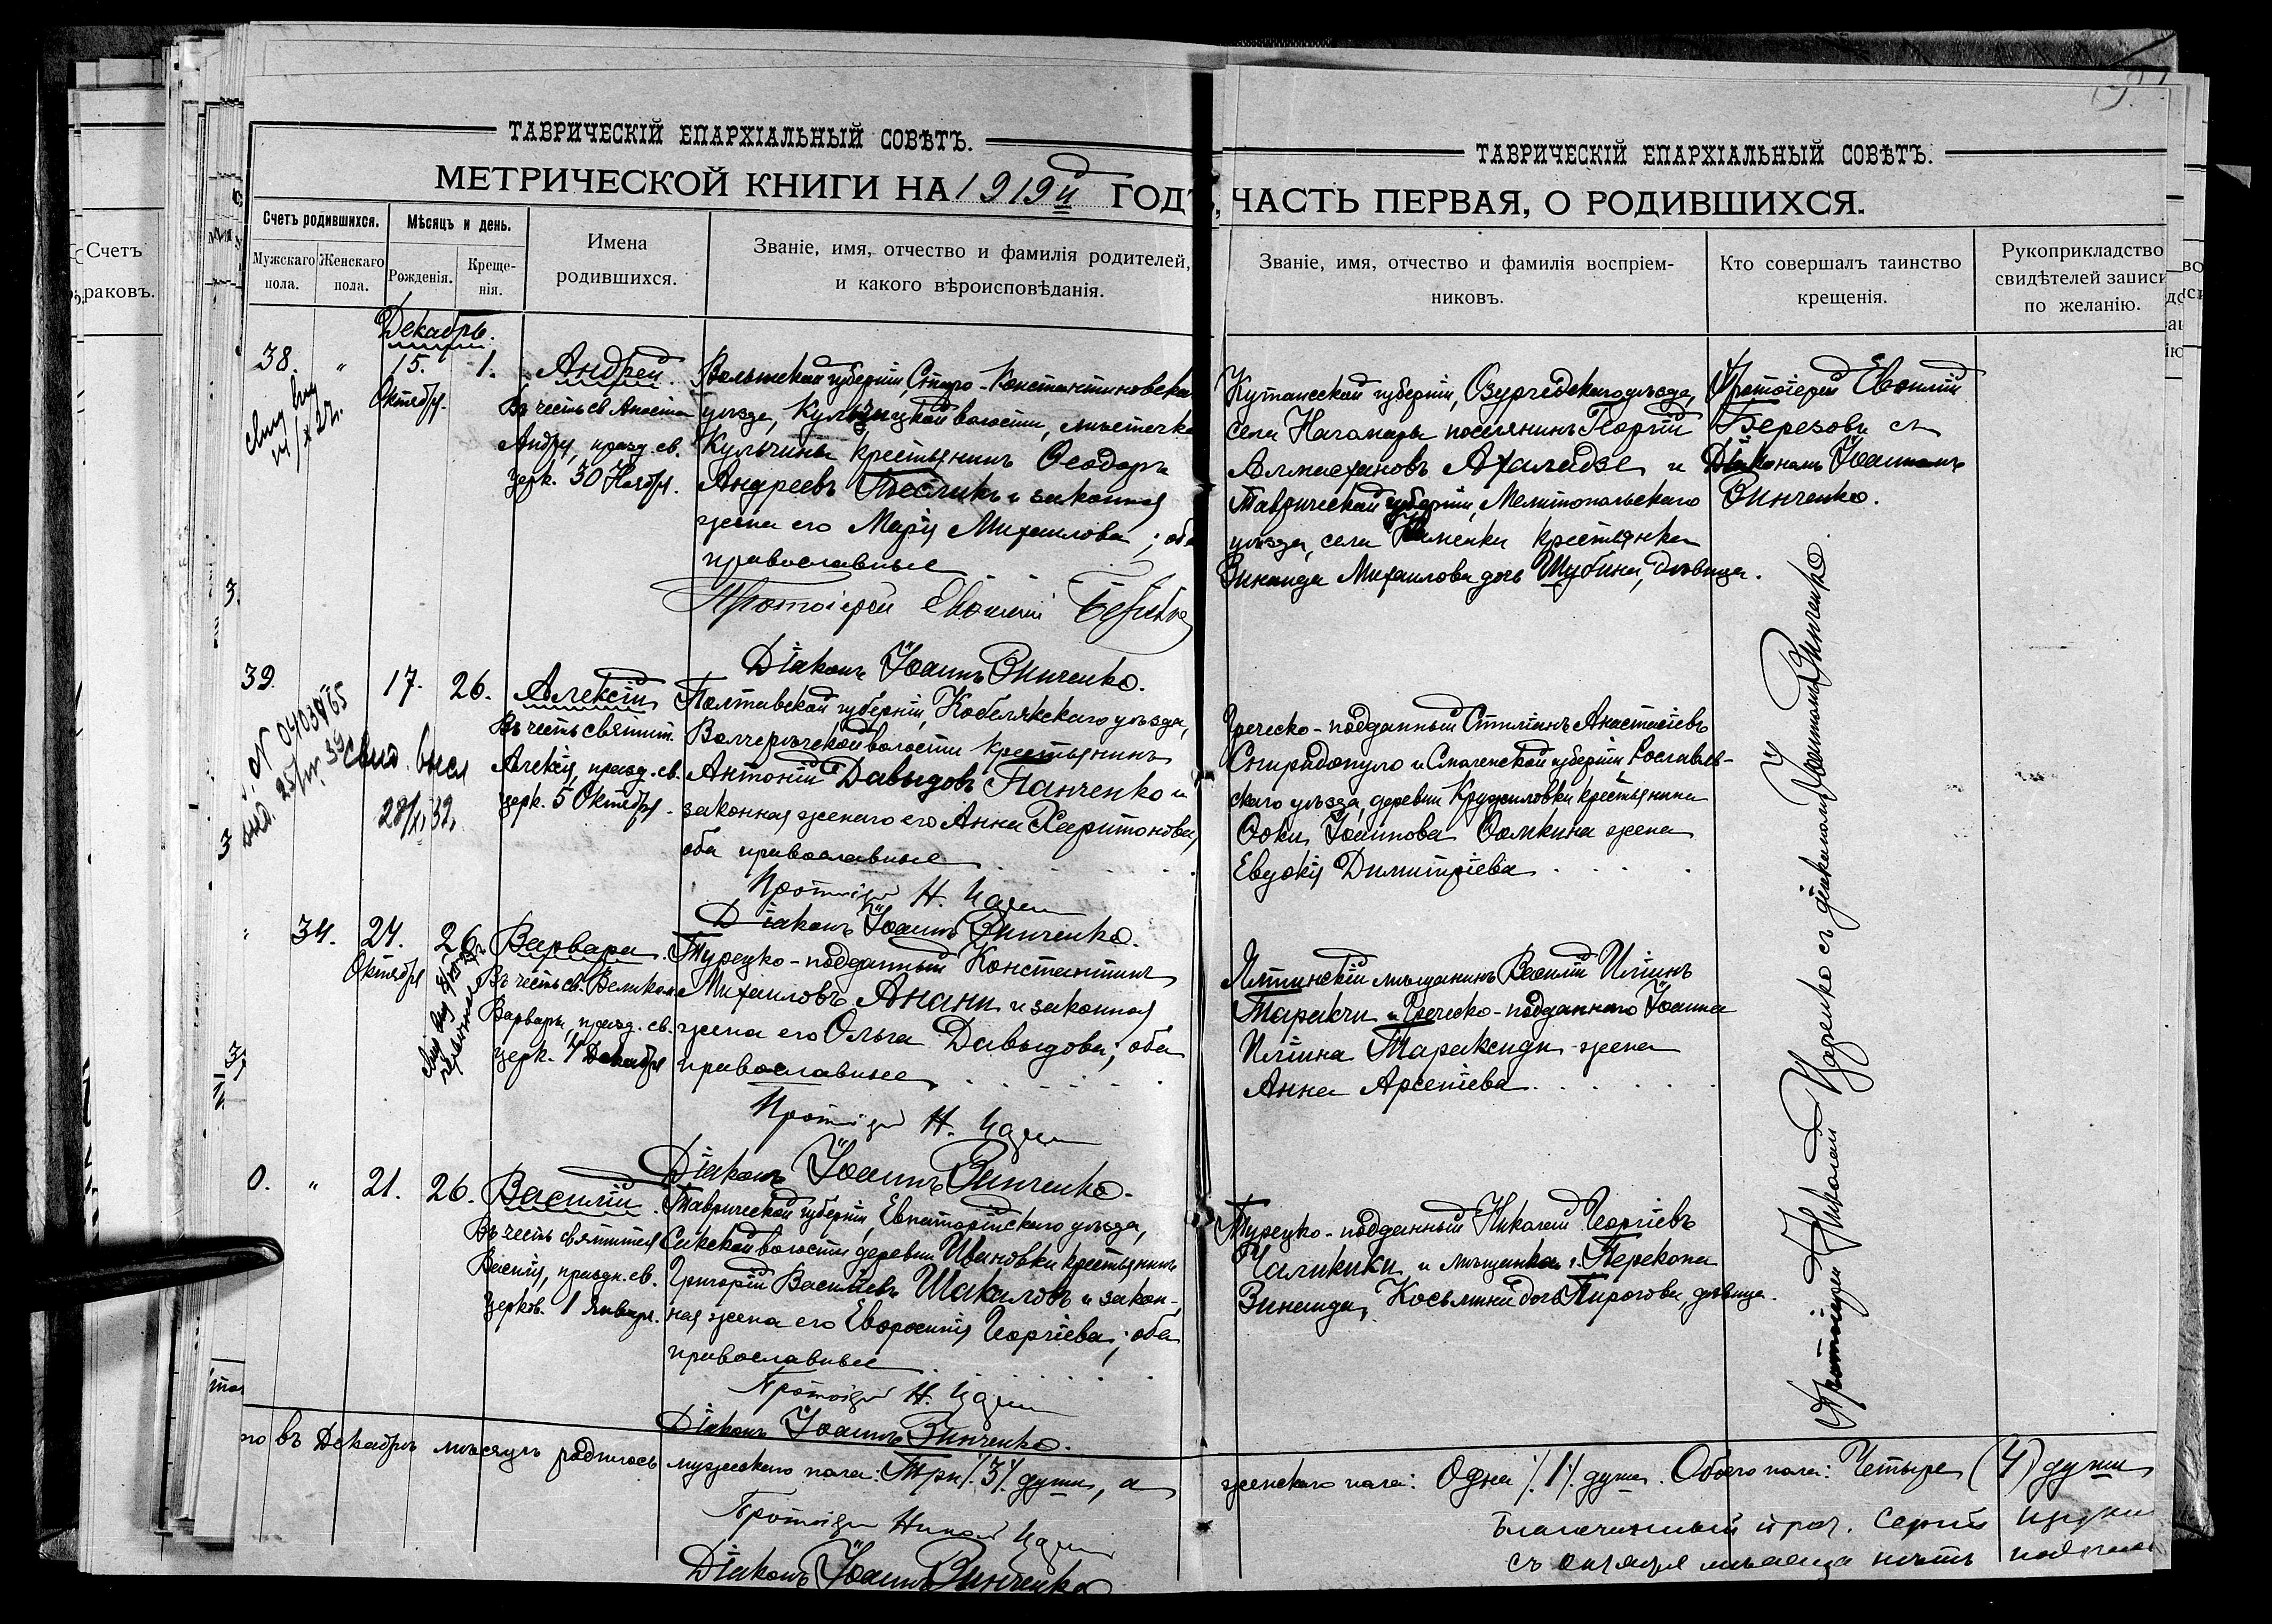 ТАВРИЧЕСКІЙ ЕПАРХІАЛЬНЫЙ СОВѢТЪ.
МЕТРИЧЕСКОЙ КНИГИ НА 1919й ГОДЪ,
Счетъ родившихся.
Мужскаго пола.
Женскаго пола.
Мѣсяцъ и день.
Рожденія.
Креще-
нія.
Имена
родившихся.
Званіе, имя, отчество и фамилія родителей,
и какого вѣроисповѣданія.
ТАВРИЧЕСКІЙ ЕПАРХІАЛЬНЫЙ СОВѢТЪ.
ЧАСТЬ ПЕРВАЯ, О РОДИВШИХСЯ.
Званіе, имя, отчество и фамилія воспріем-
никовъ.
Кто совершалъ таинство
крещенія.
Рукоприкладство
свидѣтелей записи
по желанію.
Счетъ
раковъ.
Декабрь.
38. " 15. 1.
Октября.
Андрей.
Въ честь св. Апостола
Андрея, празд. св.
церк. 30 Ноября.
Волынской губерніи, Старо-Константиновска
уѣзда, Кульчинской волости, мѣстечка
Кульчины крестьянинъ Ѳеодоръ
Андреевъ и законная
жена его Марія Михаилова; оба
православные
Протоіерей Евѳимій
Діаконъ Іоаннъ Винченко.
Кутаисской губерніи, Озургетскаго уѣзда,
села Нагомари поселянинъ Георгій
Алмасхановъ Ахаладзе и
Таврической губерніи, Мелитопольскаго
уѣзда, села Каменки крестьянка
Зинаида Михаилова дочь Шубина, дѣвица.
Протоіерей Евѳимій
Березовъ съ
Діакономъ Іоанномъ
Винченко.
39. 17. 26.
28/XI 32.
Алексій
Въ честь святит.
Алексія, празд. св.
церк. 5 Октября.
Полтавской губерніи, Кобелякскаго уѣзда,
волости крестьянинъ
Антоній Давыдовъ Панченко и
законная жена его Анна Харитонова,
оба православные
Протоіерей Н.
Діаконъ Іоаннъ Винченко.
Греческо-подданный Стиліанъ Анастасіевъ
Спиридопуло и Смоленской губерніи Рославль-
скаго уѣзда, деревни крестьянина
Іоаннова Ѳомкина жена
Евдокія Димитріева
" 34. 24. 26.
Октября
Варвара
Въ честь св. Великом.
Варвары, празд. св.
церк. 4 Декабря
Турецко-подданный Константинъ
Михаиловъ Анани и законная
жена его Ольга Давыдова; оба
православные
Протоіерей Н.
Діаконъ Іоаннъ Винченко.
Ялтинскій мѣщанинъ Василій Иліинъ
Таракчи и Греческо-подданнаго Іоанна
Иліина Тараксиди жена
Анна Арсеніева
0. " 21. 26.
Василій.
Въ честь святителя
Василія, праздн. св.
церков. 1 Января.
Таврической губерніи, Евпаторійскаго уѣзда,
Сакской волости деревни Ивановки крестьянинъ
Григорій Васильевъ Шакаловъ и закон-
ная жена его Евфросинія Георгіева; оба
православные
Протоіерей Н.
Діаконъ Іоаннъ Винченко.
Турецко-подданный Николай Георгіевъ
Паликики и мѣщанка г. Перекопа
Зинаида Косьмина дочь Пирогова, дѣвица.
Протоіерей Николай Цаденко съ діакономъ Іоанномъ Винченко
въ Декабрѣ мѣсяцѣ родилось мужескаго пола: Три /.3/. души, а
женскаго пола: Одна /.1/. душа. Обоего пола: Четыре (4) души
Протоіерей Никол
Діаконъ Іоаннъ Винченко
Благочинный прот. Сергій